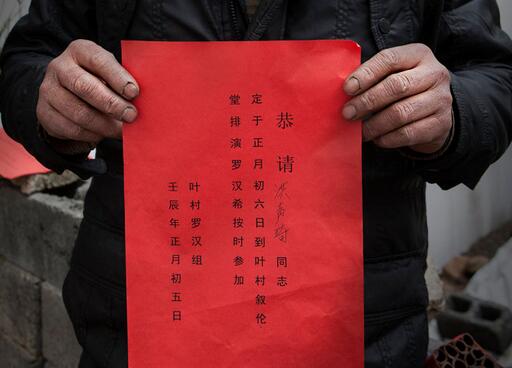 恭请洪声琦同志
定于正月初六日到叶村叙伦
堂排演罗汉希按时参加
叶村罗汉组
壬辰年正月初五日